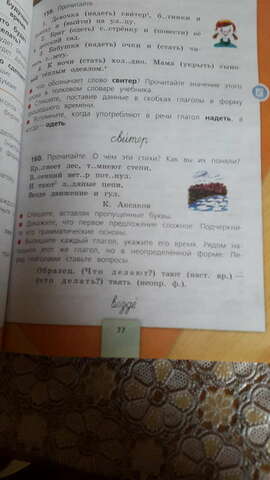 159. Прочитайте.
1. Девочка (надеть) свитер¹, б..тинки и
(выйти) на ул..цу.
2. Брат (одеть) с..стрёнку и (повести) её
сад.
Бабушка (надеть) очки и (стать)
4. К ночи (стать) хол..дно. Мама (укрыть) сына
тёплым одеялом.
Что обозначает слово свитер? Прочитайте значение этого
в толковом словаре учебника.
Спишите, поставив данные в скобках глаголы в форму
времени.
Вспомните, когда употребляют в речи глагол надеть, а
одеть.
свитер
160. Прочитайте. О чём эти стихи? Как вы их поняли?
Кр..снеет лес, т..мнеют степи.
В..сенний вет..р пот..нул.
И тают л..дяные цепи,
Везде движение и гул.
К. Аксаков
Спишите, вставляя пропущенные буквы.
Докажите, что первое предложение сложное. Подчеркните
его грамматические основы.
Выпишите каждый глагол, укажите его время. Рядом
этот же глагол, но в неопределённой форме. Пе-
ред глаголами ставьте вопросы.
Образец. (Что делают?) тают (наст. вр.) —
(что делать?) таять (неопр. ф.).
везде
77